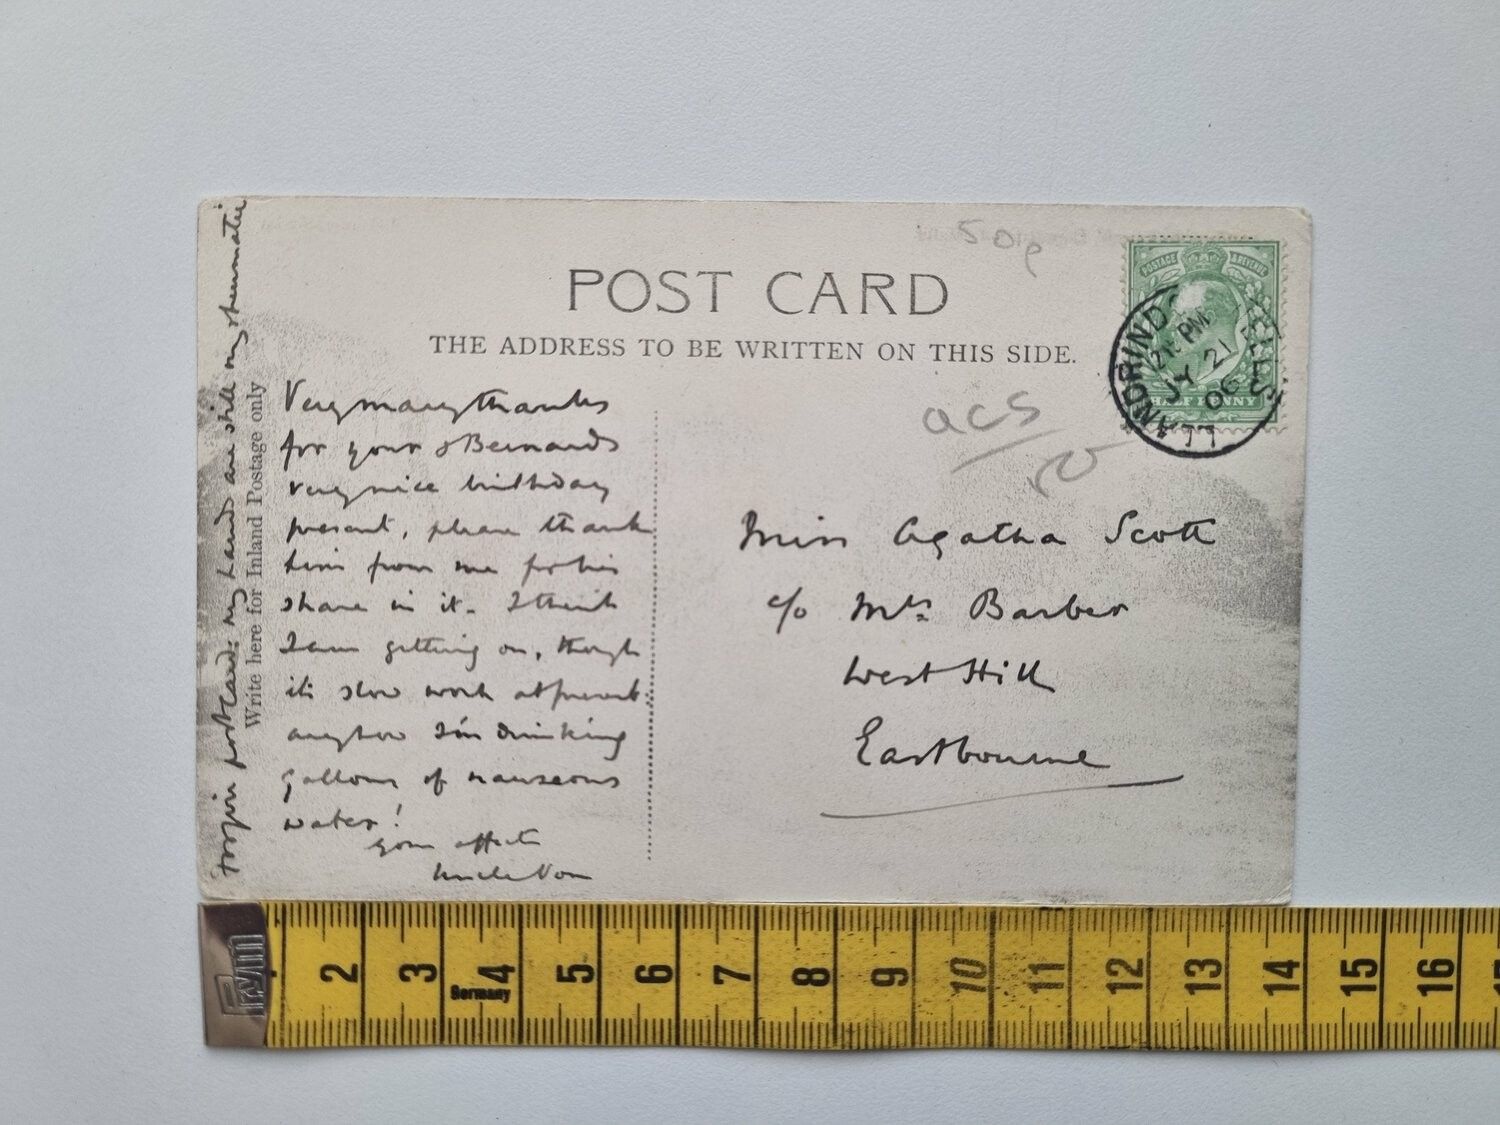 50p
POST CARD
THE ADDRESS TO BE WRITTEN ON THIS SIDE.
POSTAGE & REVENUE
HALF PENNY
LLANDRINDOD WELLS
PM
JY 21
06
acs
Forgive postcard: my hands are still very rheumatic
Write here for Inland Postage only
Very many thanks
for your & Bernards
very nice birthday
present, please thank
him from me for his
share in it. I think
I am getting on, though
it's slow work at present.
anyhow I'm drinking
gallons of nauseous
water!
your affecte
Uncle
Miss Agatha Scott
c/o Mrs Barber
West Hill
Eastbourne
Prym
Germany
2 3 4 5 6 7 8 9 10 11 12 13 14 15 16